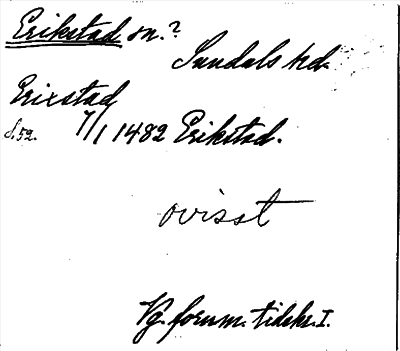 Erikstad sn.?
Sundals hd.
Erixstad
s. 52. 7/1 1482 Erikstad.
ovisst
Vg. fornm. tidskr. I.